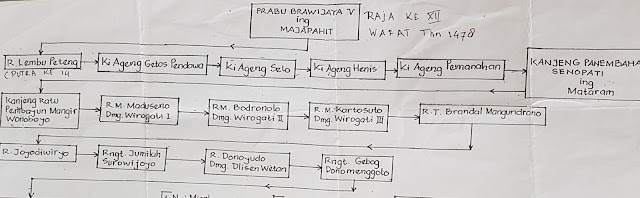 PRABU BRAWIJAYA V
ing
MAJAPAHIT
RAJA KE XII
WAFAT Thn 1478
R. Lembu Peteng
(PUTRA KE 14
Ki Ageng Getas Pendowa
Ki Ageng Selo
Ki Ageng Henis
Ki Ageng Pemanahan
KANJENG PANEMBAHA
SENOPATI
ing
Mataram
Kanjeng Ratu
Pembayun Mangir
Wonoboyo
R.M. Maduseno
Dmg. Wirogati I
RM. Bodronolo
Dmg. Wirogati II
R.M. Kartosuto
Dmg. Wirogati III
R.T. Brandal Mangundrono
R. Joyodiwiryo
Rngt. Jumilah
Surowijoyo
R. Donoyudo
Dmg. Dlisen Weton
Rngt. Gebog
Donomenggolo